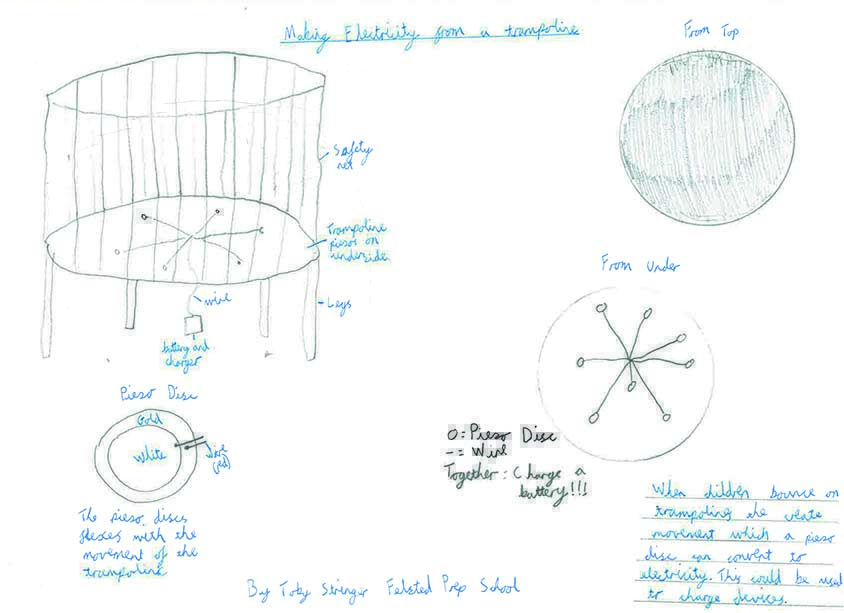 Making Electricity from a trampoline
From Top
Safety
net
Trampoline
piesos on
underside
wire
Legs
battery and
charger
From Under
Pieso Disc
Gold
White
wire
(red)
The pieso discs
flexes with the
movement of the
trampoline
O = Pieso Disc
- = Wire
Together: Charge a
battery!!!
When children bounce on
trampoling the create
movement which a pieso
disc can convert to
electricity. This could be used
to charge devices.
By Toby Stringer Felsted Prep School